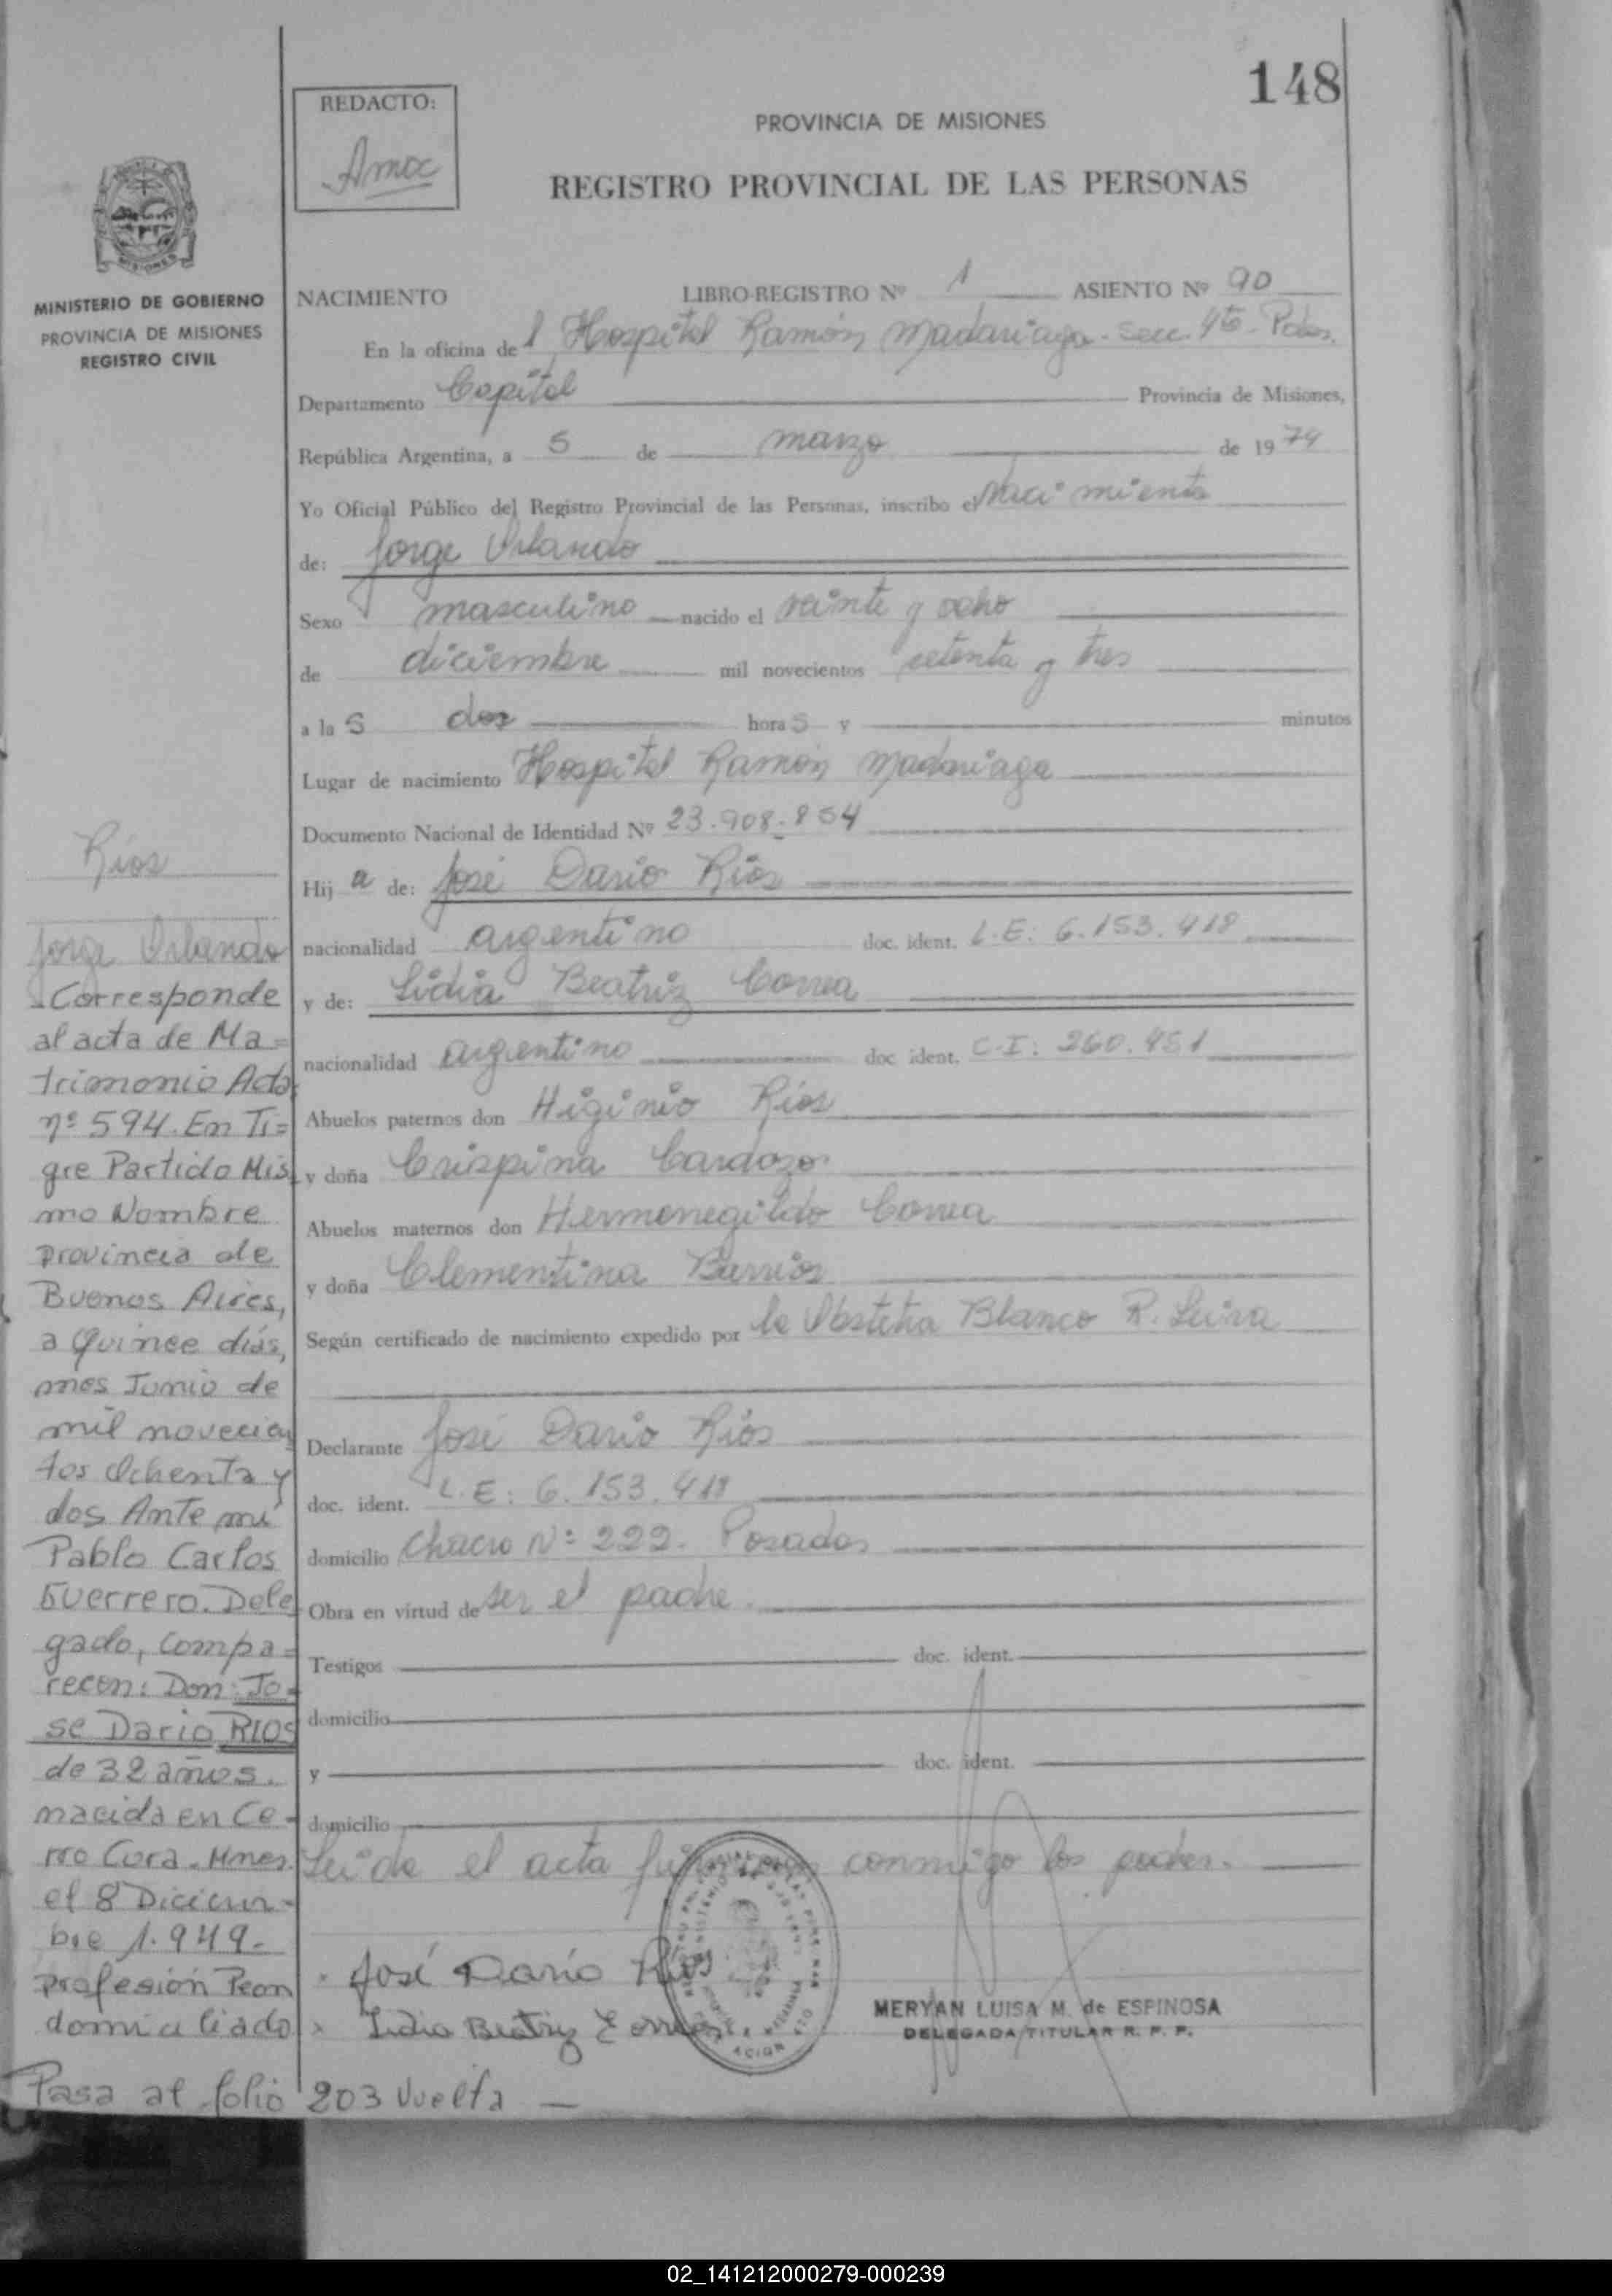 148
REDACTO:
PROVINCIA DE MISIONES
REGISTRO PROVINCIAL DE LAS PERSONAS
MINISTERIO DE GOBIERNO
PROVINCIA DE MISIONES
REGISTRO CIVIL
NACIMIENTO LIBRO-REGISTRO Nº 1 ASIENTO Nº 90
En la oficina de l Hospital Ramón Madariaga - Secc. 4ta - Pdas.
Departamento Capital Provincia de Misiones,
República Argentina, a 5 de marzo de 1974
Yo Oficial Público del Registro Provincial de las Personas, inscribo el Nacimiento
de: Jorge Orlando
Sexo masculino nacido el veinte y ocho
de diciembre mil novecientos setenta y tres
a la s dos hora s y minutos
Lugar de nacimiento Hospital Ramón Madariaga
Documento Nacional de Identidad Nº 23.908.854
Hij o de: José Dario Ríos
nacionalidad argentino doc. ident. L.E: 6.153.418
y de: Lidia Beatriz Correa
nacionalidad argentino doc ident. C.I: 260.451
Abuelos paternos don Higinio Ríos
y doña Crispina Cardozo
Abuelos maternos don Hermenegildo Correa
y doña Clementina Barrios
Según certificado de nacimiento expedido por la Obstetra Blanco R. Luisa
Declarante José Dario Ríos
doc. ident. L.E: 6.153.418
domicilio Chacra Nº 222. Posadas
Obra en virtud de ser el padre.
Testigos doc. ident.
domicilio
y doc. ident.
domicilio
Leida el acta firman conmigo los padres.
José Darío Ríos
Lidia Beatriz Correa
MERYAN LUISA M. de ESPINOSA
DELEGADA TITULAR R. P. P.
Ríos
Jorge Orlando
Corresponde
al acta de Ma=
trimonio Acta
nº 594. En Ti=
gre Partido Mis
mo Nombre
provincia de
Buenos Aires,
a Quince días,
mes Junio de
mil novecien
tos Ochenta y
dos Ante mi
Pablo Carlos
Guerrero. Dele
gado, compa=
recen: Don: Jo=
se Dario RIOS
de 32 años.
nacida en Ce-
rro Cora - Mnes.
el 8 Diciem-
bre 1.949-
profesión Peon
domiciliado
Pasa al folio 203 Vuelta
02_141212000279-000239